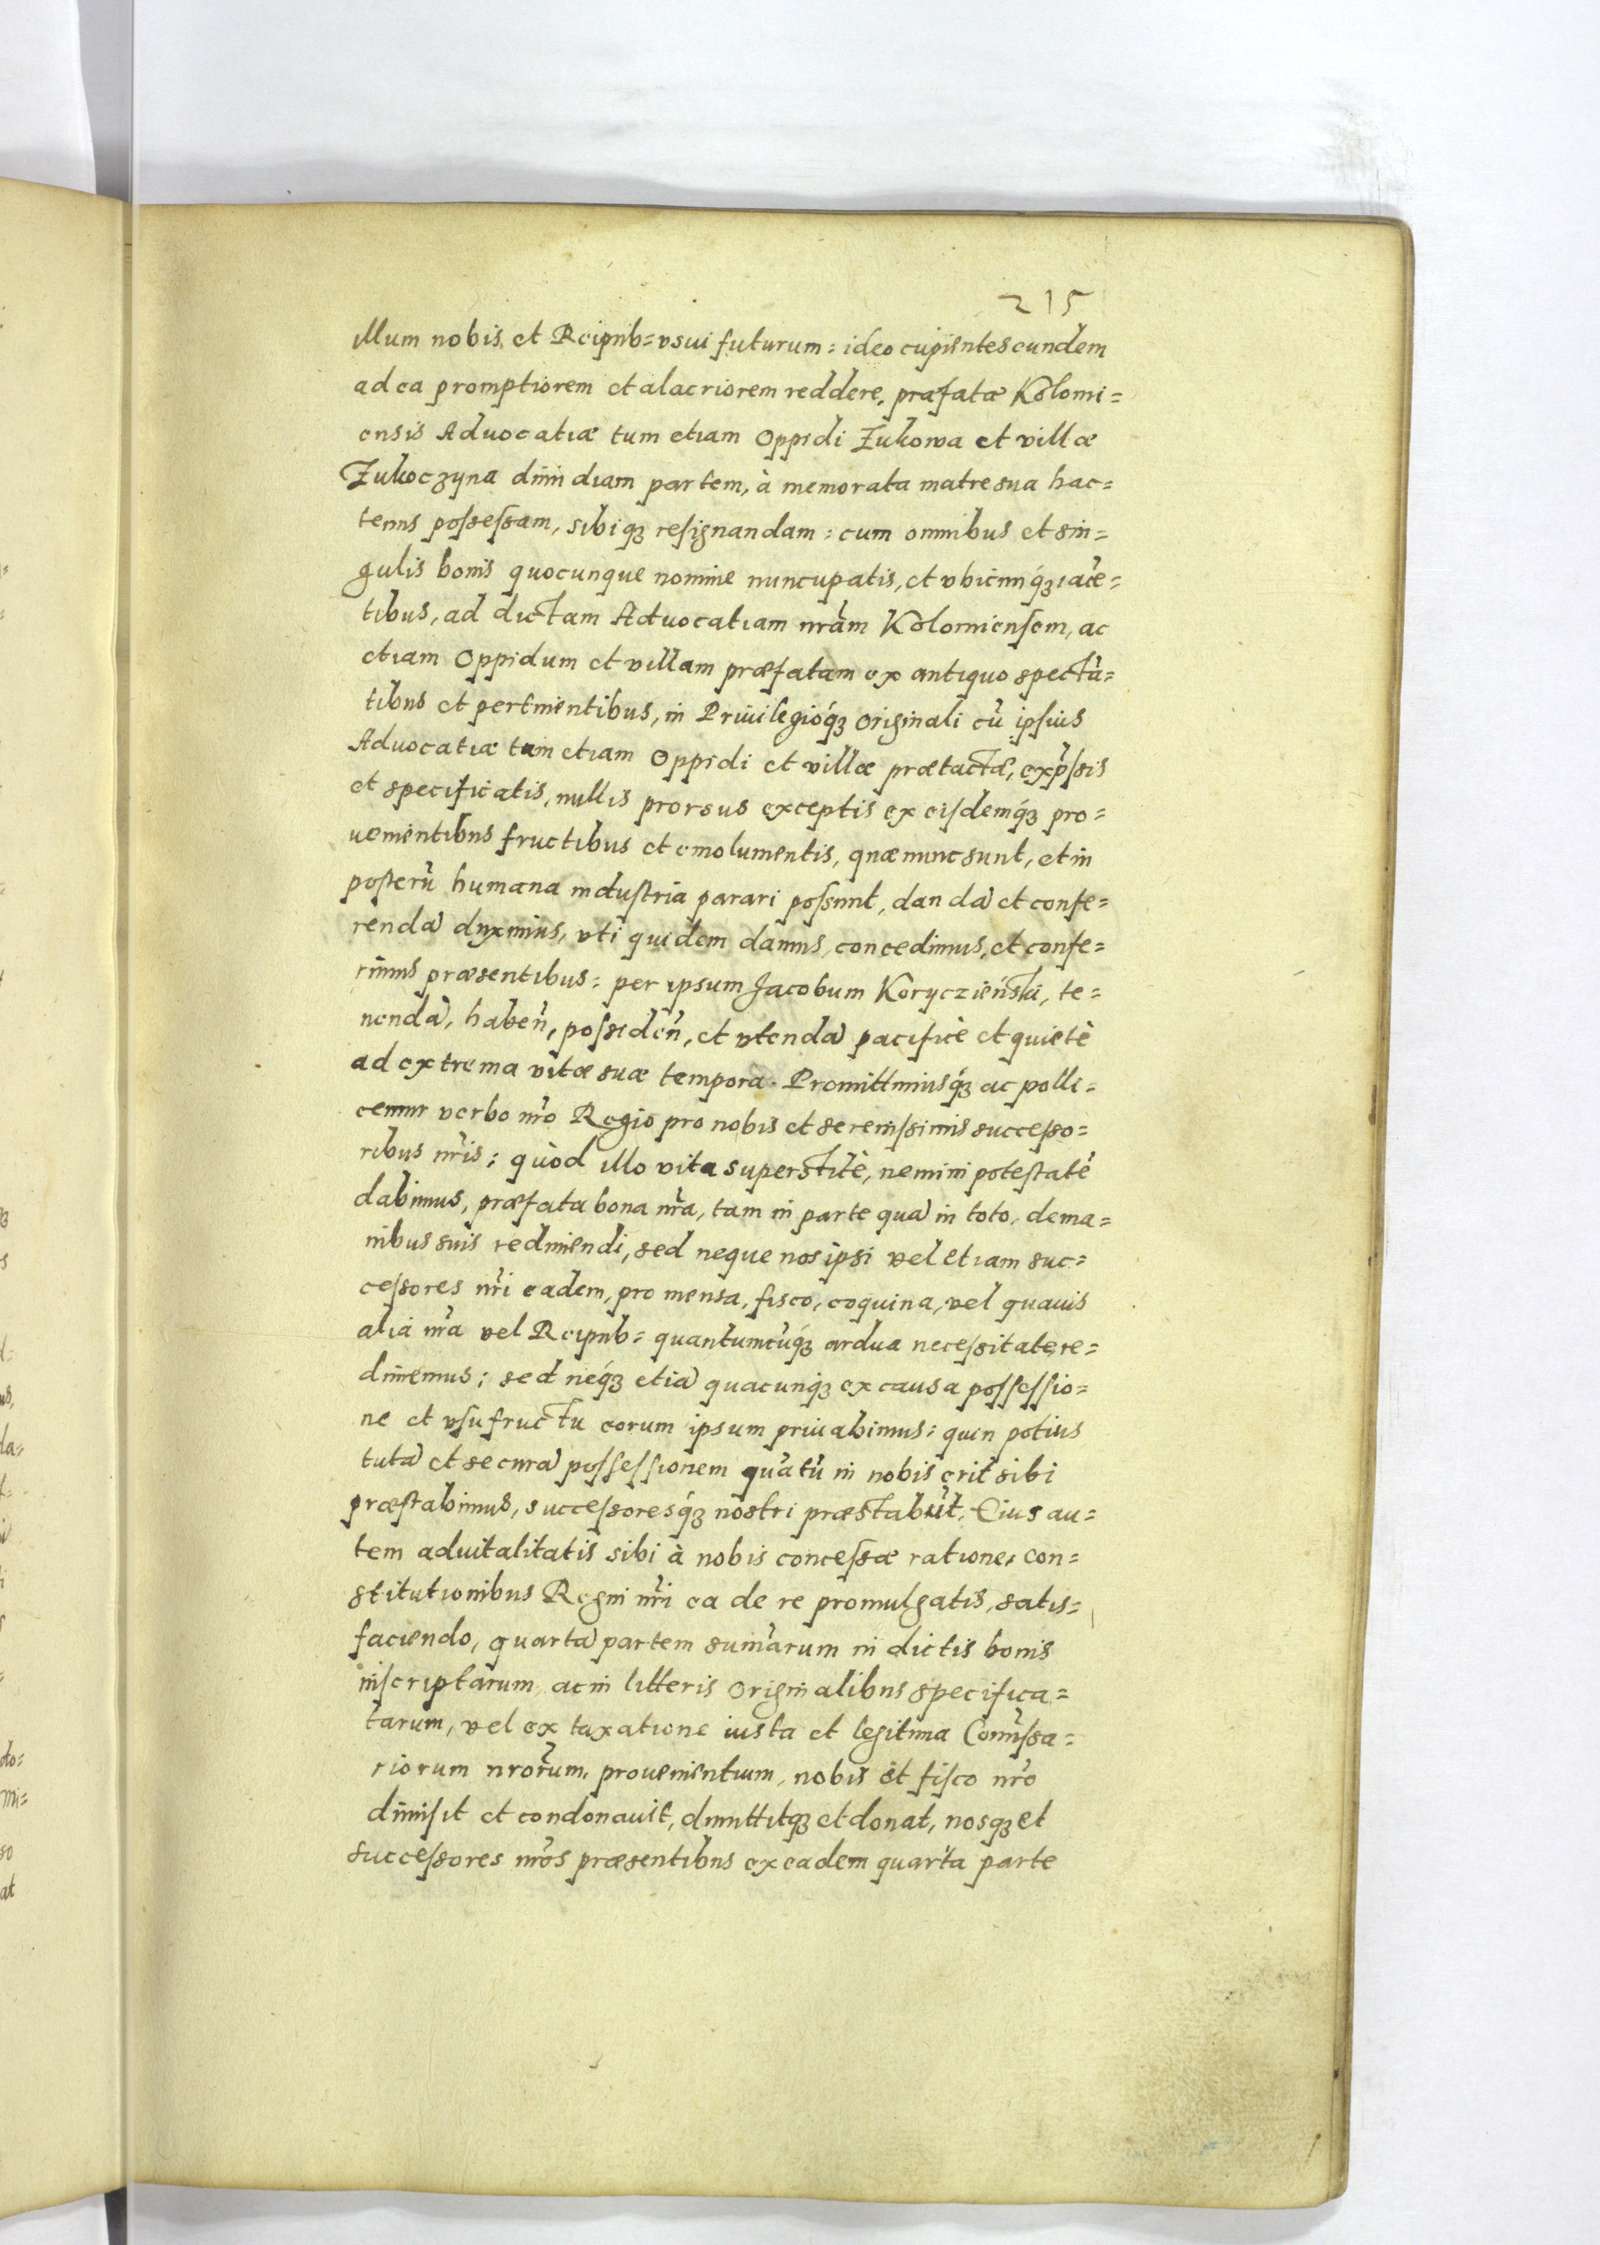 215
illum nobis et Reipub= vsui futurum: ideo cupientes eundem
ad ea promptiorem et alacriorem reddere, præfatæ Kolomi=
ensis Aduocatiæ tum etiam Oppidi Zukowa et villæ
Zukoczyna dimidiam partem, à memorata matre sua hac=
tenus possessam, sibiqꝫ resignandam: cum omnibus et sin=
gulis bonis quocunque nomine nuncupatis, et vbicunqꝫ iacē=
tibus, ad dictam Aduocatiam nr̃am Kolomiensem, ac
etiam Oppidum et villam præfatam ex antiquo spectã=
tibus et pertinentibus, in Priuilegioqꝫ originali cũ ipsius
Aduocatiæ tum etiam Oppidi et villæ prætactæ, exp̃ssis
et specificatis, nullis prorsus exceptis ex eisdemqꝫ pro=
uenientibus fructibus et emolumentis, quæ nunc sunt, et in
posterũ humana industria parari possunt, dandã et confe=
rendã duximus, vti quidem damus, concedimus, et confe=
rimus præsentibus: per ipsum Jacobum Korycziński, te=
nendã, habeñ, possideñ, et vtendã pacificè et quietè
ad extrema vitæ suæ tempora. Promittimusqꝫ ac polli=
cemur verbo nr̃o Regio pro nobis et serenissimis successo=
ribus nr̃is: quòd illo vita superstitè, nemini potestatẽ
dabimus, præfata bona nr̃a, tam in parte quã in toto, de ma=
nibus suis redimendi, sed neque nos ipsi vel etiam suc=
cessores nr̃i eadem, pro mensa, fisco, coquina, vel quauis
alia nr̃a vel Reipub= quantumcũqꝫ ardua necessitate re=
dimemus: sed neqꝫ etiã quacunqꝫ ex causa possessio=
ne et vsufructu eorum ipsum priuabimus: quin potius
tutã et securã possessionem quãtũ in nobis erit sibi
præstabimus, successoresqꝫ nostri præstabũt. Eius au=
tem aduitalitatis sibi à nobis concessæ ratione, con=
stitutionibus Regni nr̃i ea de re promulgatis, satis=
faciendo, quartã partem sum̃arum in dictis bonis
inscriptarum, ac in litteris originalibus specifica=
tarum, vel ex taxatione iusta et legitima Com̃issa=
riorum nror̃um, prouenientium, nobis et fisco nr̃o
dimisit et condonauit, dimittitqꝫ et donat, nosqꝫ et
successores nr̃os præsentibus ex eadem quarta parte